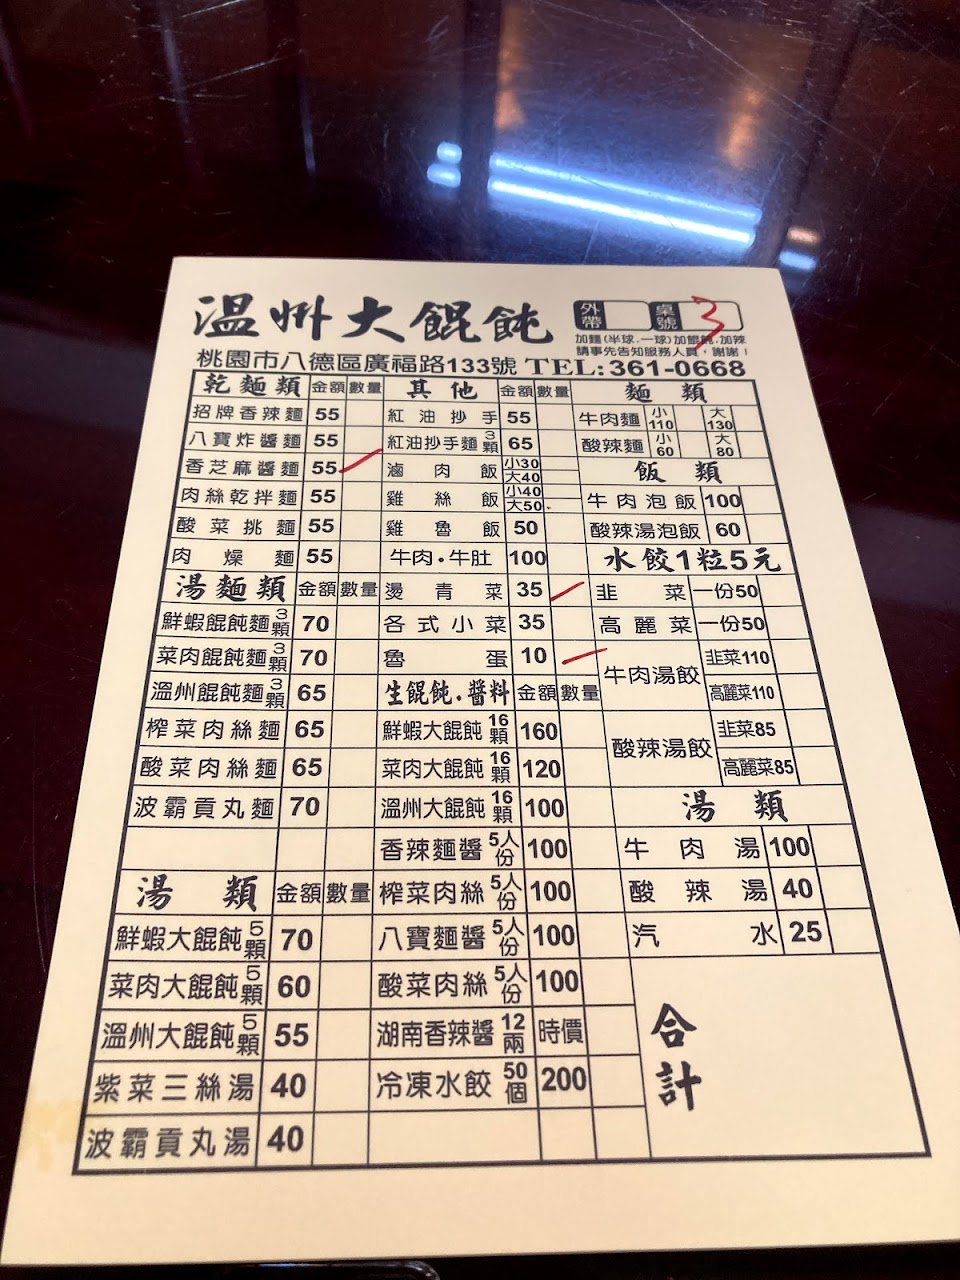 溫州大餛飩
外帶
桌號 3
加麵(半球.一球)加餛飩.加辣
請事先告知服務人員,謝謝!
桃園市八德區廣福路133號 TEL:361-0668
乾麵類 金額 數量
招牌香辣麵 55
八寶炸醬麵 55
香芝麻醬麵 55
肉絲乾拌麵 55
酸菜挑麵 55
肉燥麵 55
湯麵類 金額 數量
鮮蝦餛飩麵 3顆 70
菜肉餛飩麵 3顆 70
溫州餛飩麵 3顆 65
榨菜肉絲麵 65
酸菜肉絲麵 65
波霸貢丸麵 70
湯類 金額 數量
鮮蝦大餛飩 5顆 70
菜肉大餛飩 5顆 60
溫州大餛飩 5顆 55
紫菜三絲湯 40
波霸貢丸湯 40
其他 金額 數量
紅油抄手 55
紅油抄手麵 3顆 65
滷肉飯 小30
大40
雞絲飯 小40
大50
雞魯飯 50
牛肉.牛肚 100
燙青菜 35
各式小菜 35
魯蛋 10
生餛飩.醬料 金額 數量
鮮蝦大餛飩 16顆 160
菜肉大餛飩 16顆 120
溫州大餛飩 16顆 100
香辣麵醬 5人份 100
榨菜肉絲 5人份 100
八寶麵醬 5人份 100
酸菜肉絲 5人份 100
湖南香辣醬 12兩 時價
冷凍水餃 50個 200
麵類
牛肉麵 小110 大130
酸辣麵 小60 大80
飯類
牛肉泡飯 100
酸辣湯泡飯 60
水餃1粒5元
韭菜 一份50
高麗菜 一份50
牛肉湯餃 韭菜110
高麗菜110
酸辣湯餃 韭菜85
高麗菜85
湯類
牛肉湯 100
酸辣湯 40
汽水 25
合計